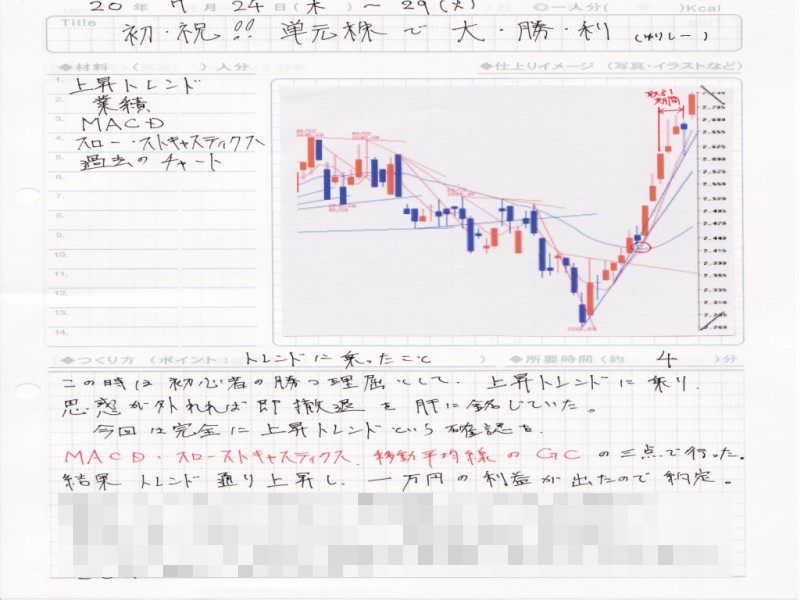 20 年 7 月 24 日(木) ～ 29(火) ◎一人分( )Kcal
Title 初・祝!! 単元株で 大・勝・利 (ゆりしー)
◆材料 ( )人分
◆仕上りイメージ (写真・イラストなど)
1. 上昇トレンド
2. 業績
3. MACD
4. スロー・ストキャスティクス
5. 過去のチャート
6.
7.
8.
9.
10.
11.
12.
13.
14.
取引期間
2.655
2.625
2.595
2.570
2.550
2.520
2.495
2.470
2.440
2.415
2.390
2.365
2.335
2.310
2.260
◆つくり方 (ポイント: トレンドに乗ったこと ) ◆所要時間(約 4 )分
この時は初心者の勝つ理屈として、上昇トレンドに乗り、
思惑が外れれば即撤退を肝に銘じていた。
今回は完全に上昇トレンドという確認を、
MACD・スローストキャスティクス、移動平均線のGCの三点で行った。
結果トレンド通り上昇し、一万円の利益が出たので約定。